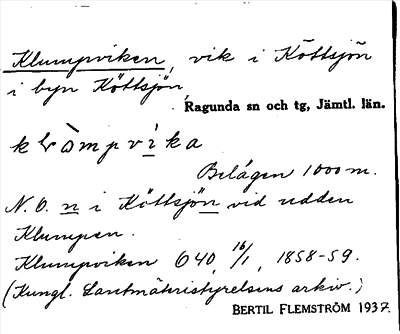 Klumpviken, vik i Köttsjön
i byn Köttsjön,
Ragunda sn och tg, Jämtl. län.
Belägen 1000 m.
N.O. n i Köttsjön vid udden
Klumpen.
Klumpviken 040, 16/1, 1858-59.
(Kungl. Lantmäteristyrelsens arkiv.)
BERTIL FLEMSTRÖM 1937.